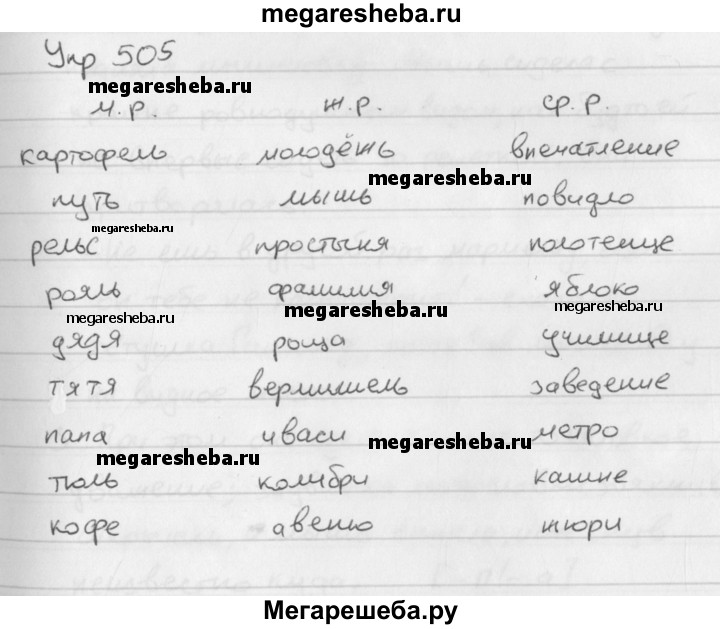 megaresheba.ru
Упр 505
megaresheba.ru
м.р. ж.р. ср.р.
картофель молодёжь впечатление
megaresheba.ru
путь мышь повидло
megaresheba.ru
рельс простыня полотенце
рояль фамилия яблоко
megaresheba.ru megaresheba.ru megaresheba.ru
дядя роща училище
тятя вермишель заведение
папа иваси метро
megaresheba.ru megaresheba.ru
тюль колибри кашне
кофе авеню жюри
Мегарешеба.ру